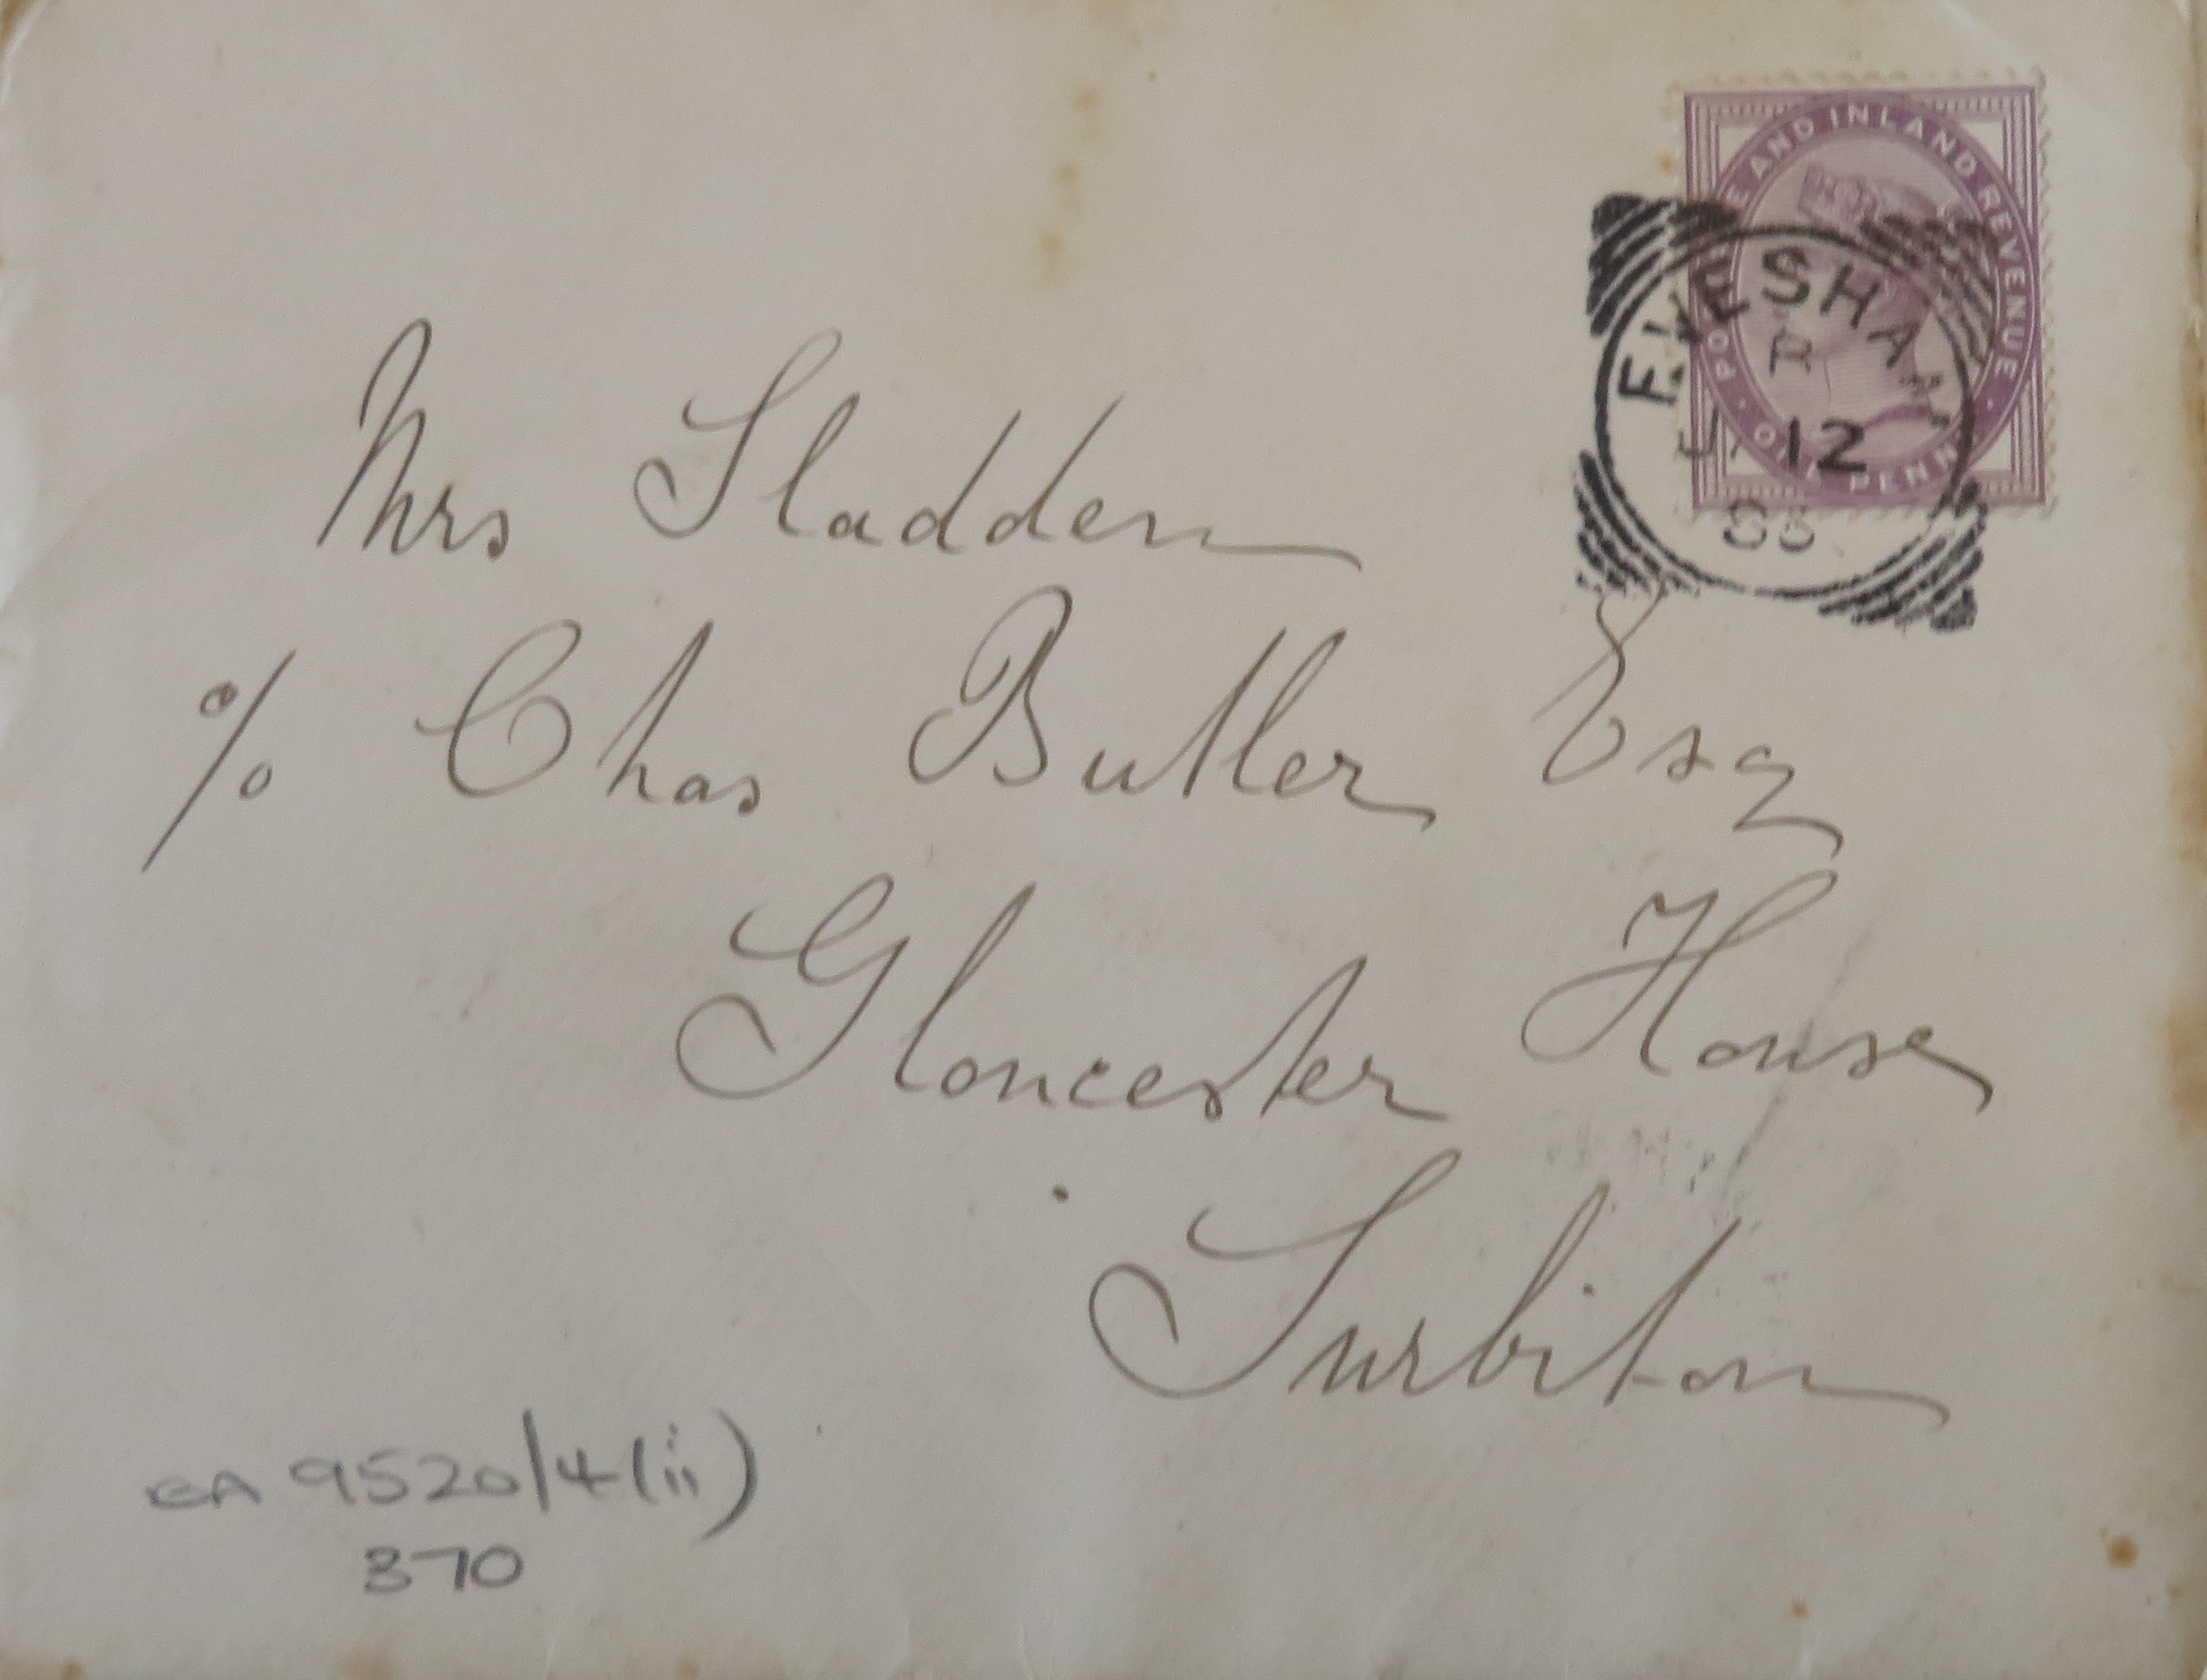 POSTAGE AND INLAND REVENUE · ONE PENNY ·
EVESHAM
R
12
Mrs Sladden
c/o Chas Butler Esq
Gloucester House
Surbiton
EA 9520/4(ii)
370